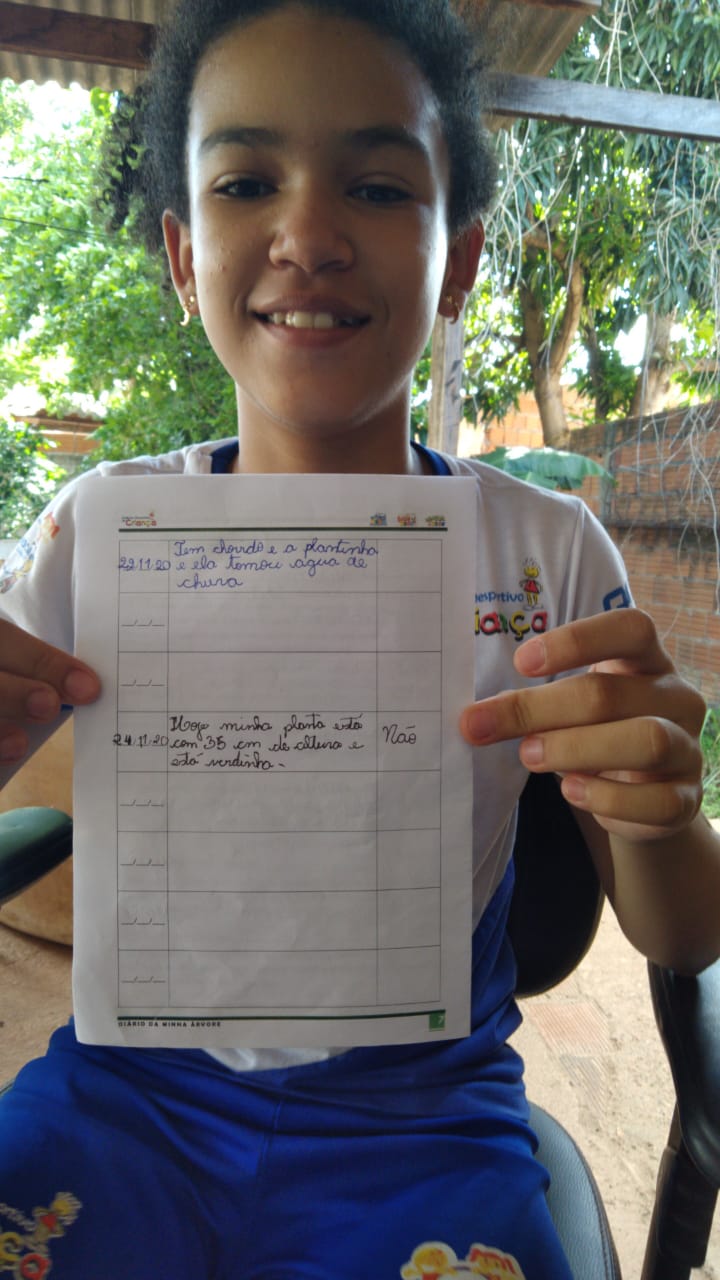 Criança
22/11/20
Tem chovido e a plantinha
e ela tomou água de
chuva
__/__/__
__/__/__
24/11/20
Hoje minha planta está
com 35 cm de altura e
está verdinha.
Não
__/__/__
__/__/__
__/__/__
__/__/__
DIÁRIO DA MINHA ÁRVORE
7
esportivo
iança